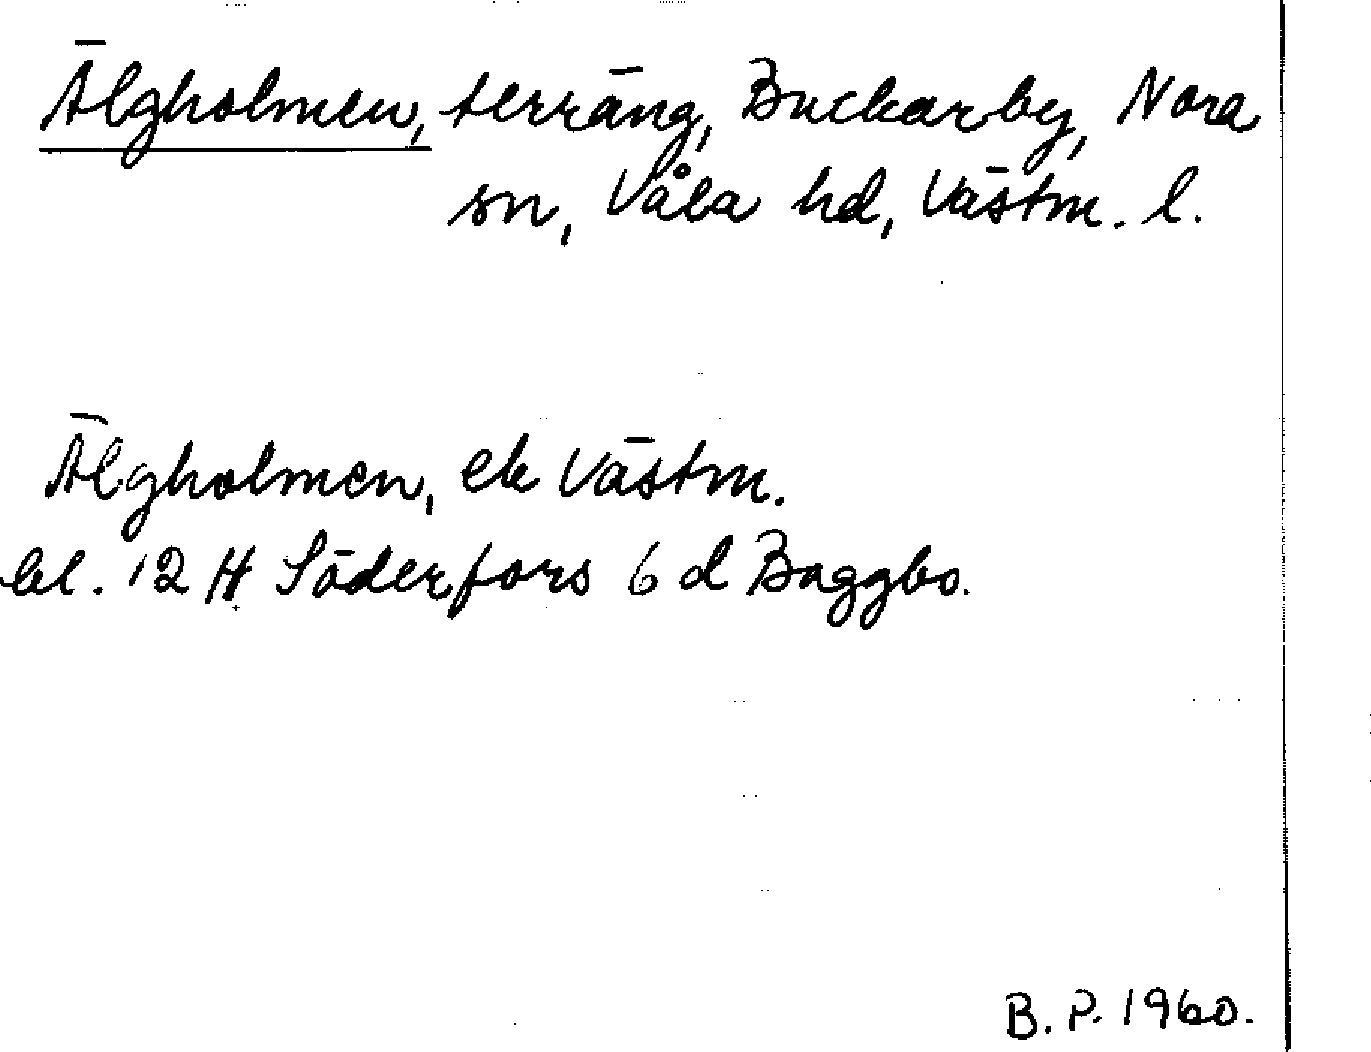 Älgholmen, terräng, Buckarby, Nora
sn, Våla hd, Västm. l.
Älgholmen, ek Västm.
bl. 12 H Söderfors 6 d Baggbo.
B. P. 1960.